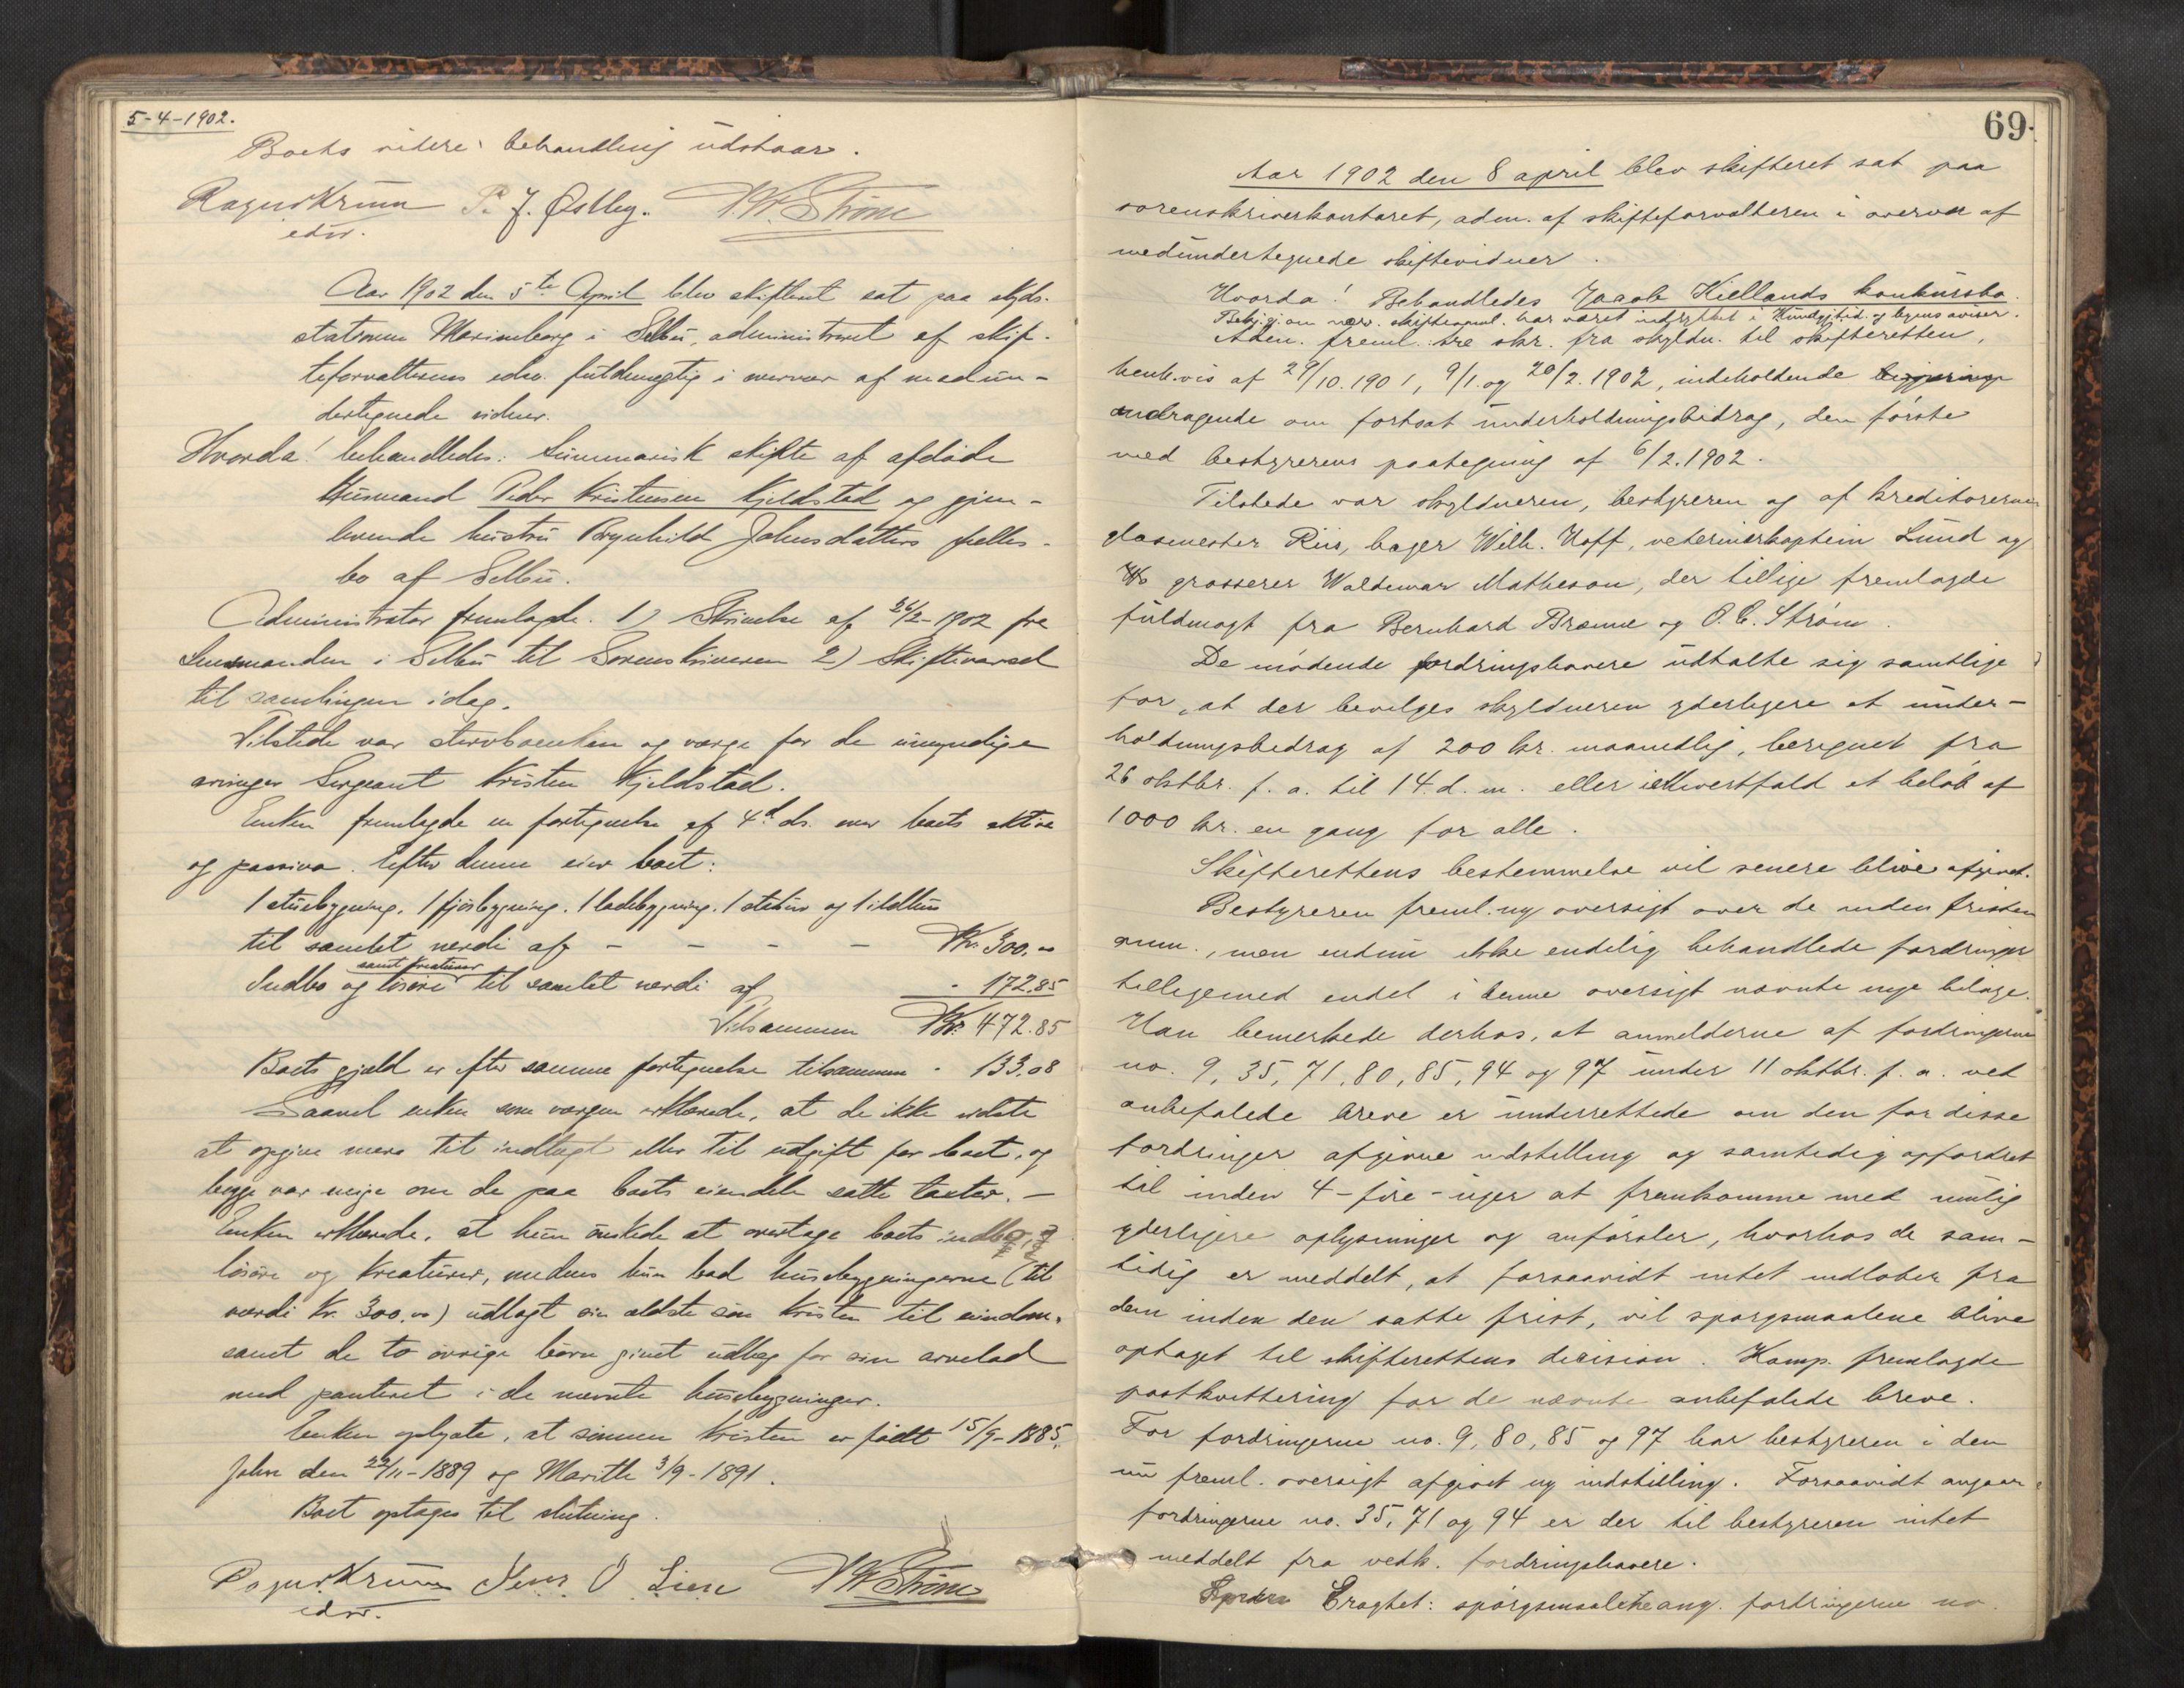 5-4-1902.
Boets videre behandling udstaar.
Ragnv Krum P. J. Østby. W. Strøm
edsv.
Aar 1902 den 5te April blev skifteret sat paa skyds-
stationen Marienborg i Selbu, administreret af skif-
teforvalterens edsv. fuldmægtig i overvær af medun-
dertegnede vidner.
Hvorda! behandledes: Summarisk skifte af afdøde
Husmand Peder Kristensen Kjeldstad og gjen-
levende hustru Brynhild Johnsdatters fælles-
bo af Selbu.
Administrator fremlagde. 1) Skrivelse af 26/2-1902 fra
Lensmanden i Selbu til Sorenskriveren 2) Skiftevarsel
til samlingen idag.
Tilstede var stervboenken og værge for de umyndige
arvinger Sergeant Kristen Kjeldstad.
Enken fremlagde en fortegnelse af 4d ds. over boets aktiva
og passiva. Efter denne eier boet:
1 stuebygning, 1 fjøsbygning. 1 ladebygning. 1 stabur og 1 ildhus
til samlet værdi af - - - - Kr. 300.00
Indbo og løsøre samt kreaturer til samlet værdi af - 172.85
Tilsammen Kr. 472.85
Boets gjæld er efter samme fortegnelse tilsammen - 133.08
Saavel enken som værgen erklærede, at de ikke vidste
at opgive mere til indtægt eller til udgift for boet, og
begge var enige om de paa boets eiendele satte taxter. -
Enken erklærede, at hun ønskede at overtage boets indbo,
løsøre og kreaturer, medens hun bad husebygningerne (til
værdi Kr. 300.00) udlagt sin ældste søn Kristen til eiendom,
samt de to øvrige børn givet udlæg for sin arvelod
med panteret i de nævnte husebygninger.
Enken oplyste, at sønnen Kristen er født 15/9-1885,
John den 22/11-1889 og Marith 3/9-1891.
Boet optages til slutning.
Ragnv Krum Jens O Lien W Strøm
edsv.
69.
Aar 1902 den 8 april blev skifteret sat paa
sorenskriverkontoret, adm. af skifteforvalteren i overvær af
medundertegnede skiftevidner.
Hvorda! Behandledes Jacob Kiellands konkursbo.
Bekjg. om nærv. skiftesaml. har været indrykket i Kundgj.tid. og byens aviser.
Adm. freml. tre skr. fra skyldn. til skifteretten,
henh.vis af 29/10.1901, 9/1. og 20/2.1902, indeholdende
andragende om fortsat underholdningsbidrag, den første
med bestyrerens paategning af 6/2.1902.
Tilstede var skyldneren, bestyreren og af kreditorerne
glasmester Riis, bager Wilh. Hoff, veterinærkaptein Lund og
grosserer Waldemar Matheson, der tillige fremlagde
fuldmagt fra Bernhard Brænne og O. C. Strøm.
De mødende fordringshavere udtalte sig samtlige
for, at der bevilges skyldneren yderligere et under-
holdningsbidrag af 200 kr. maanedlig, beregnet fra
26 oktbr. f. a. til 14. d. m. eller iethvertfald et beløb af
1000 kr. en gang for alle.
Skifterettens bestemmelse vil senere blive afgivet.
Bestyreren freml. ny oversigt over de inden fristen
anm., men endnu ikke endelig behandlede fordringer
tilligemed endel i denne oversigt nævnte nye bilage.
Han bemerkede derhos, at anmelderne af fordringerne
no. 9, 35, 71, 80, 85, 94 og 97 under 11 oktbr. f. a. ved
anbefalede breve er underrettede om den for disse
fordringer afgivne indstilling og samtidig opfordret
til inden 4-fire-uger at fremkomme med mulig
yderligere oplysninger og anførsler, hvorhos de sam-
tidig er meddelt, at forsaavidt intet indløber fra
dem inden den satte frist, vil spørgsmaalene blive
optaget til skifterettens decision. Komp. fremlagde
postkvittering for de nævnte anbefalede breve.
For fordringerne no. 9, 80, 85 og 97 har bestyreren i den
nu freml. oversigt afgivet ny indstilling. Forsaavidt angaar
fordringerne no. 35, 71 og 94 er der til bestyreren intet
meddelt fra vedk. fordringshavere.
Eragtet: spørgsmaalene ang. fordringerne no.